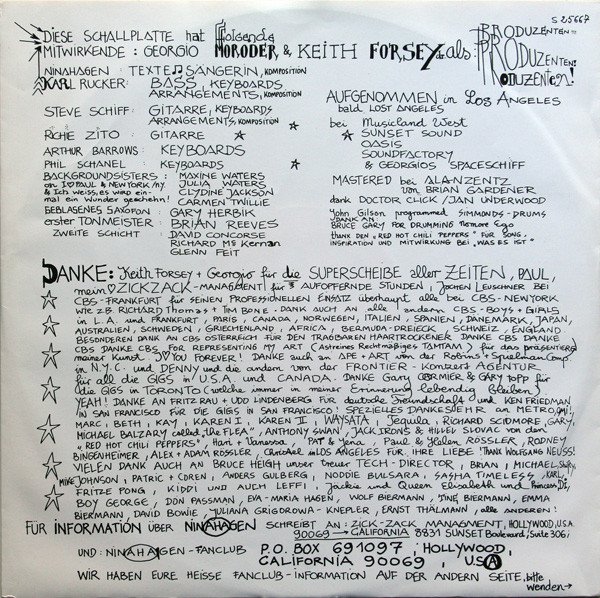 S 25667
DIESE SCHALLPLATTE hat folgende
MITWIRKENDE: GEORGIO MORODER, & KEITH FORSEY als: PRODUZENTEN!!! PRODUZENTEN! PRODUZENTEN!
NINAHAGEN: TEXTE SÄNGERIN, KOMPOSITION
KARL RUCKER: BASS, KEYBOARDS
ARRANGEMENTS, KOMPOSITION
STEVE SCHIFF: GITARRE, KEYBOARDS
ARRANGEMENTS, KOMPOSITION
RICHIE ZITO: GITARRE
ARTHUR BARROWS: KEYBOARDS
PHIL SCHANEL: KEYBOARDS
BACKGROUNDSISTERS: MAXINE WATERS
an I♡PAUL & NEWYORK/NY. JULIA WATERS
& Ich weiss, es wird ein- CLYDINE JACKSON
mal ein Wunder geschehn! CARMEN TWILLIE
BEBLASENES SAXOFON: GARY HERBIK
erster TONMEISTER: BRIAN REEVES
ZWEITE SCHICHT: DAVID CONCORSE
RICHARD McKernan
GLENN FEIT
AUFGENOMMEN in Los Angeles
bald LOST ANGELES
bei Musicland West
SUNSET SOUND
OASIS
SOUNDFACTORY
& GEORGIOS SPACESCHIFF
MASTERED bei ALANZENTZ
von BRIAN GARDENER
dank DOCTOR CLICK / JAN UNDERWOOD
John Gilson programmed SIMMONDS-DRUMS
DANKE AN:
BRUCE GARY FOR DRUMMING Nomore Ego
THANK DEN „RED HOT CHILI PEPPERS" FÜR SONG,
INSPIRATION UND MITWIRKUNG BEI „WAS ES IST"
DANKE: Keith Forsey + Georgio für die SUPERSCHEIBE aller ZEITEN, PAUL,
mein♡ZICKZACK-MANAGEMENT für AUFOPFERNDE STUNDEN, JOCHEN LEUSCHNER BEI
CBS-FRANKFURT FÜR SEINEN PROFESSIONELLEN EINSATZ überhaupt alle bei CBS-NEWYORK
WIE Z.B. RICHARD Thomas + TIM BONE. DANK AUCH AN alle andern CBS-BOYS + GIRLS
in L.A. und FRANKFURT, PARIS, CANADA, NORWEGEN, ITALIEN, SPANIEN, DÄNEMARK, JAPAN,
AUSTRALIEN, SCHWEDEN, GRIECHENLAND, AFRICA, BERMUDA-DREIECK, SCHWEIZ, ENGLAND.
BESONDEREN DANK AN CBS ÖSTERREICH FÜR DEN TRAGBAREN HAARTROCKENER DANKE CBS DANKE
CBS DANKE CBS, FOR REPRESENTING MY ART (Astreines Rechtmässiges TAMTAM) für das präsentieren
meiner Kunst I♡YOU FOREVER! DANKE auch an APE + ART von der Robins + Spielman Comp.
in N.Y.C. UND DENNY und die andern von der FRONTIER-KONZERT AGENTUR
für all die GIGS in U.S.A. UND CANADA. DANKE GARY CORMIER & GARY TOPP für
die GIGS in TORONTO (welche immer in meiner Erinnerung lebendig bleiben.
YEAH! DANKE AN FRITZ RAU + UDO LINDENBERG für deutsche Freundschaft und KEN FRIEDMAN
IN SAN FRANCISCO FÜR DIE GIGS IN SAN FRANCISCO! SPEZIELLES DANKESEHR an METRO,
MARC, BETH, KAY, KAREN I, KAREN II, WAYSATA, Tequila, RICHARD SCIDMORE, GARY,
MICHAEL BALZARY called „THE FLEA", ANTHONY SWAN, JACK IRONS & HILLEL SLOVAC von den
„RED HOT CHILI PEPPERS", Hari + Vanessa, PAT & Yena, Paul & Helen RÖSSLER, RODNEY
BINGENHEIMER, ALEX + ADAM RÖSSLER, Christel in LOS ANGELES FÜR IHRE LIEBE! THANK WOLFGANG NEUSS!
VIELEN DANK AUCH AN BRUCE HEIGH unser treuer TECH-DIRECTOR, BRIAN, MICHAEL
MIKE JOHNSON, PATRIC + COREN, ANDERS GULBERG, NODDIE BULSARA, SASHA TIMELESS, KARL,
FRITZE PONG, KIDDI UND AUCH LEFFI, Jackie und Queen Elisabeth und Princess
BOY GEORGE, DON PASSMAN, EVA-MARIA HAGEN, WOLF BIERMANN, TINE BIERMANN, EMMA
BIERMANN, DAVID BOWIE, JULIANA GRIGOROWA-KNEPLER, ERNST THÄLMANN, alle anderen!
FÜR INFORMATION über NINAHAGEN SCHREIBT AN: ZICK-ZACK MANAGMENT, HOLLYWOOD, U.S.A.
90069 → CALIFORNIA 8831 SUNSET Boulevard, Suite 306
UND: NINAHAGEN-FANCLUB P.O. BOX 691097, HOLLYWOOD,
CALIFORNIA 90069, USA
WIR HABEN EURE HEISSE FANCLUB-INFORMATION AUF DER ANDERN SEITE, bitte
wenden→